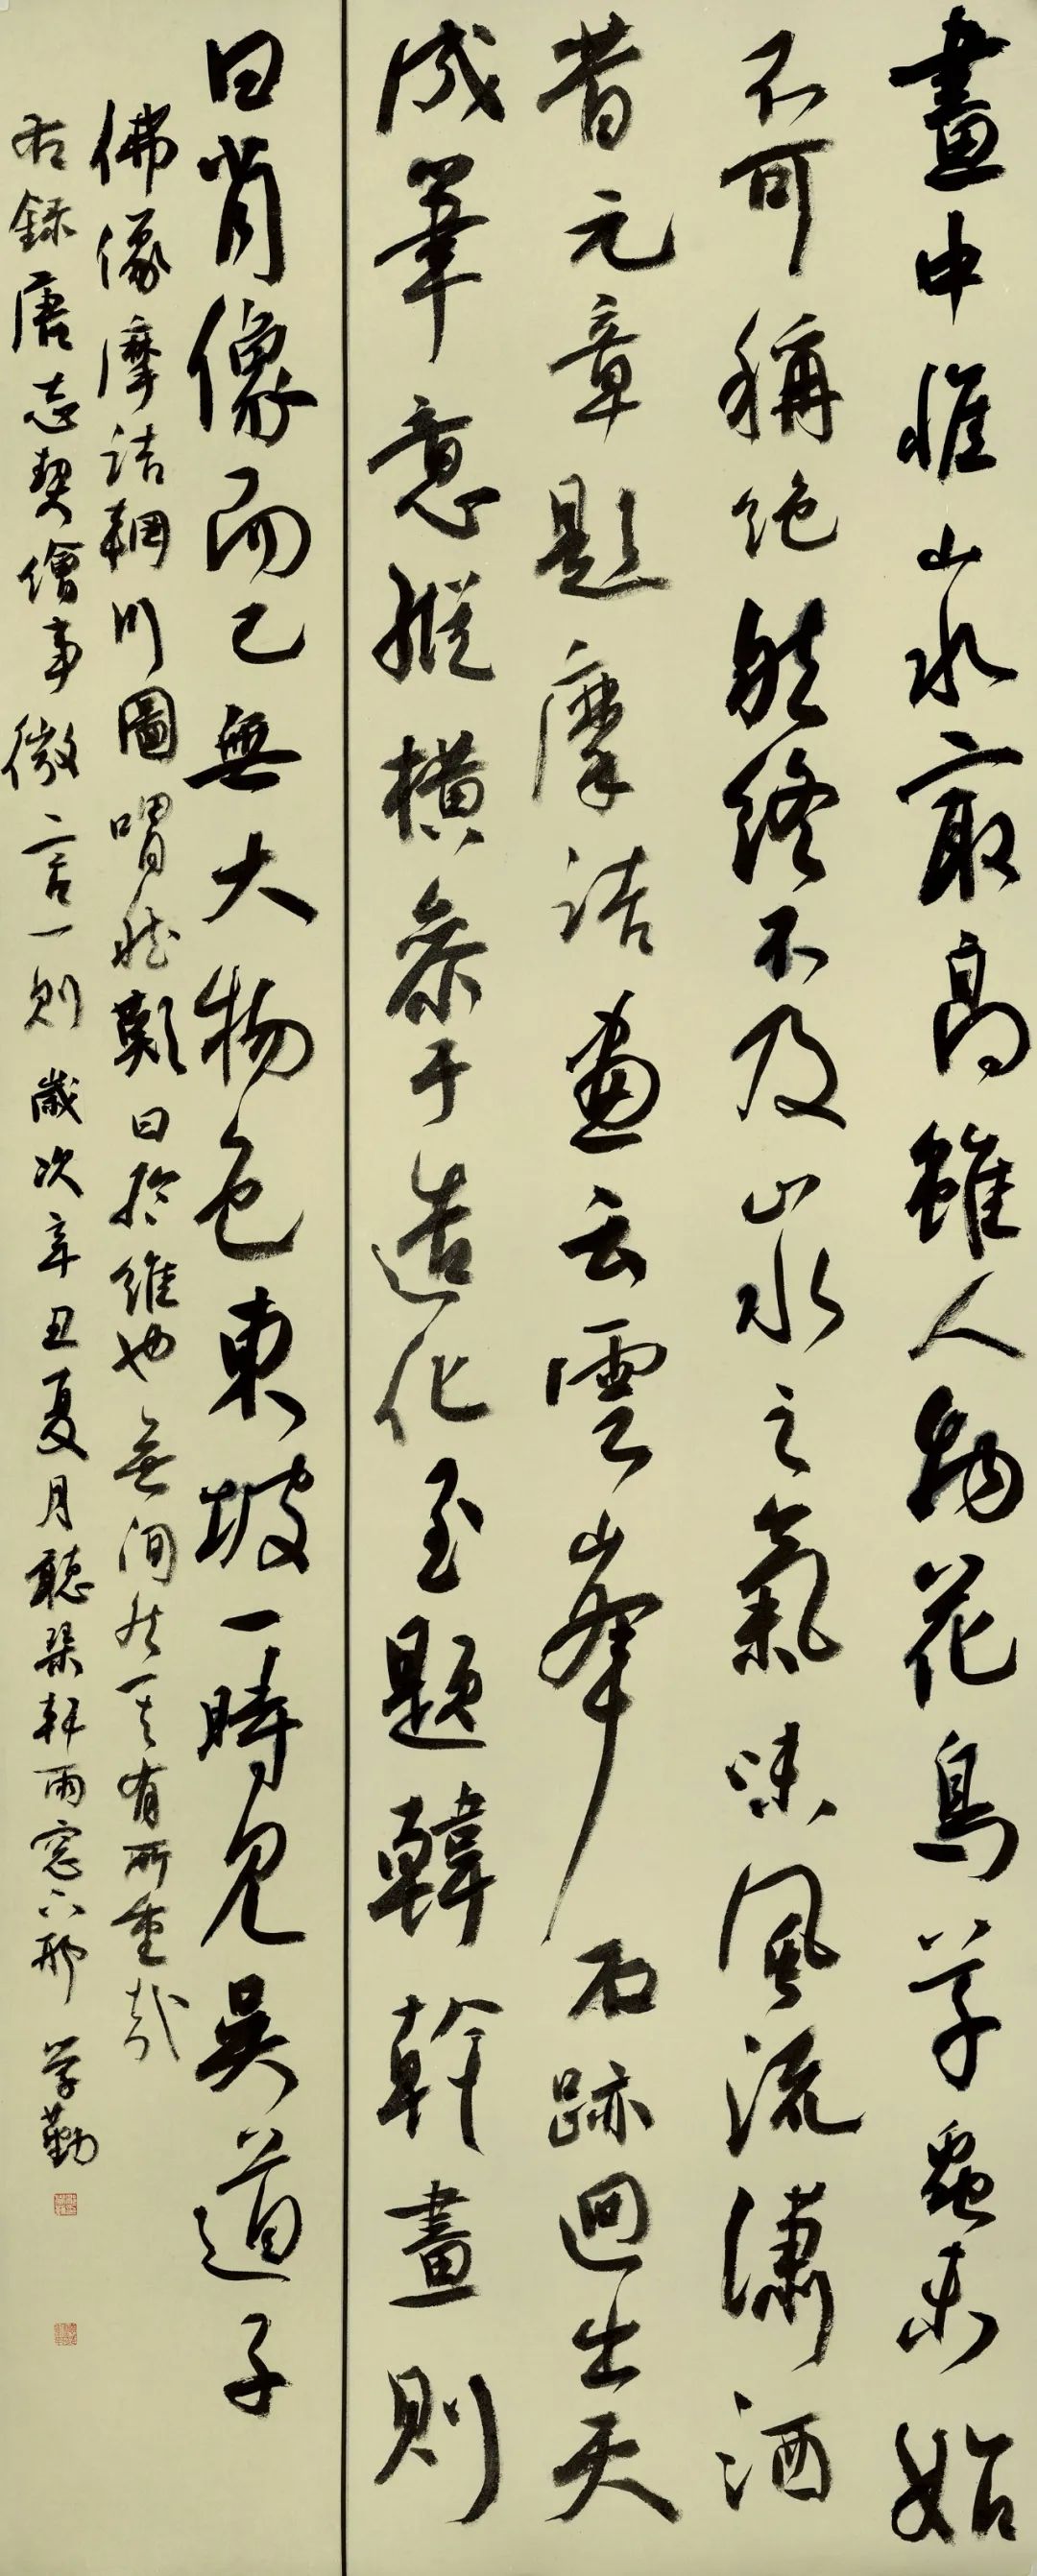 畫中惟山水最高雖人物花鳥草蟲未始
不可稱绝然終不及山水之氣味風流瀟洒
昔元章題摩詰畫云雲峯石跡迥出天
成筆意縱橫參于造化至題韓幹畫則
曰肖像而已無大物色東坡一時見吳道子
佛像摩詰輞川圖喟然歎曰於維也無間然其有所重哉
右錄唐志契繪事微言一則歲次辛丑夏月聽琹軒雨窓下邢学勤